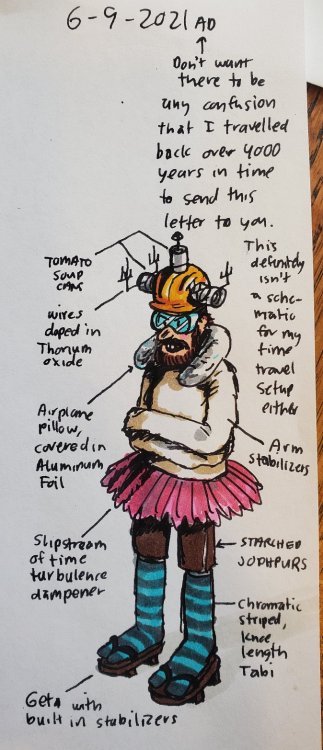 6-9-2021 AD
Don't want
there to be
any confusion
that I travelled
back over 4000
years in time
to send this
letter to you.
TOMATO
SOUP
CANS
This
definitely
isn't
a sche-
matic
for my
time
travel
setup
either
wires
doped in
Thorium
oxide
Airplane
pillow,
covered in
Aluminum
Foil
Arm
stabilizers
Slipstream
of time
turbulence
dampener
STARCHED
JODHPURS
Chromatic
striped,
knee
length
Tabi
Geta with
built in stabilizers